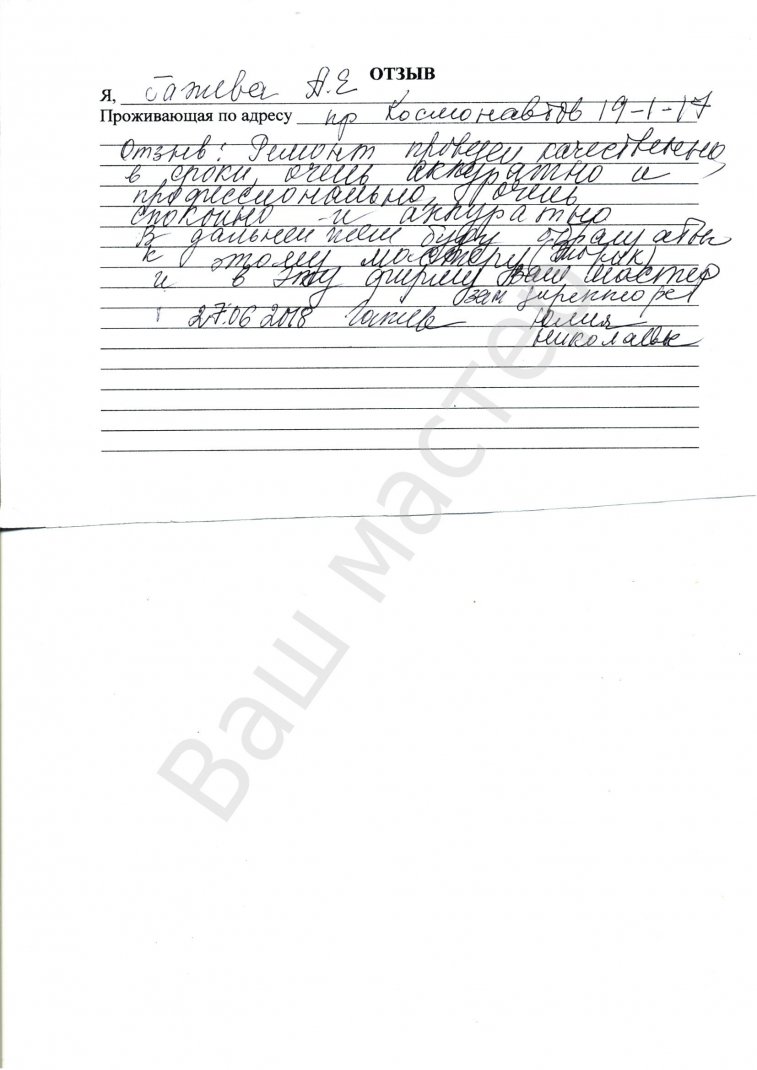 ОТЗЫВ
Я, Гажева А.Е
Проживающая по адресу пр Космонавтов 19-1-17
Отзыв: Ремонт проведен качественно,
в сроки, очень аккуратно и
профессионально, очень
спокойно и аккуратно
В дальнейшем буду обращаться
к этому мастеру
и в эту фирму Ваш мастер
зам директора
27.06 2018 Юлия
Николаевна
Ваш мастер